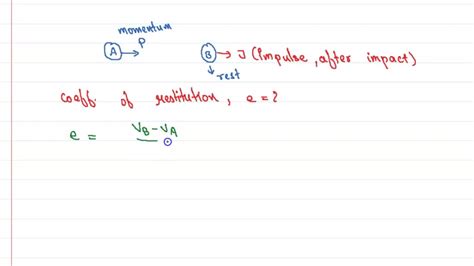 momentum
P
A B J (Impulse, after impact)
rest
coeff of restitution, e=?
e = VB-VA